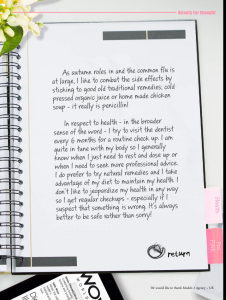 Beauty by Design
As autumn roles in and the common flu is
at large, I like to combat the side effects by
sticking to good old traditional remedies; cold
pressed organic juice or home made chicken
soup - it really is penicillin!
In respect to health - in the broader
sense of the word - I try to visit the dentist
every 6 months for a routine check up. I am
quite in tune with my body so I generally
know when I just need to rest and dose up or
when I need to seek more professional advice.
I do prefer to try natural remedies and I take
advantage of my diet to maintain my health. I
don't like to jeopardize my health in any way
so I get regular checkups - especially if I
suspect that something is wrong. It's always
better to be safe rather than sorry!
return
We would like to thank Models 1 Agency